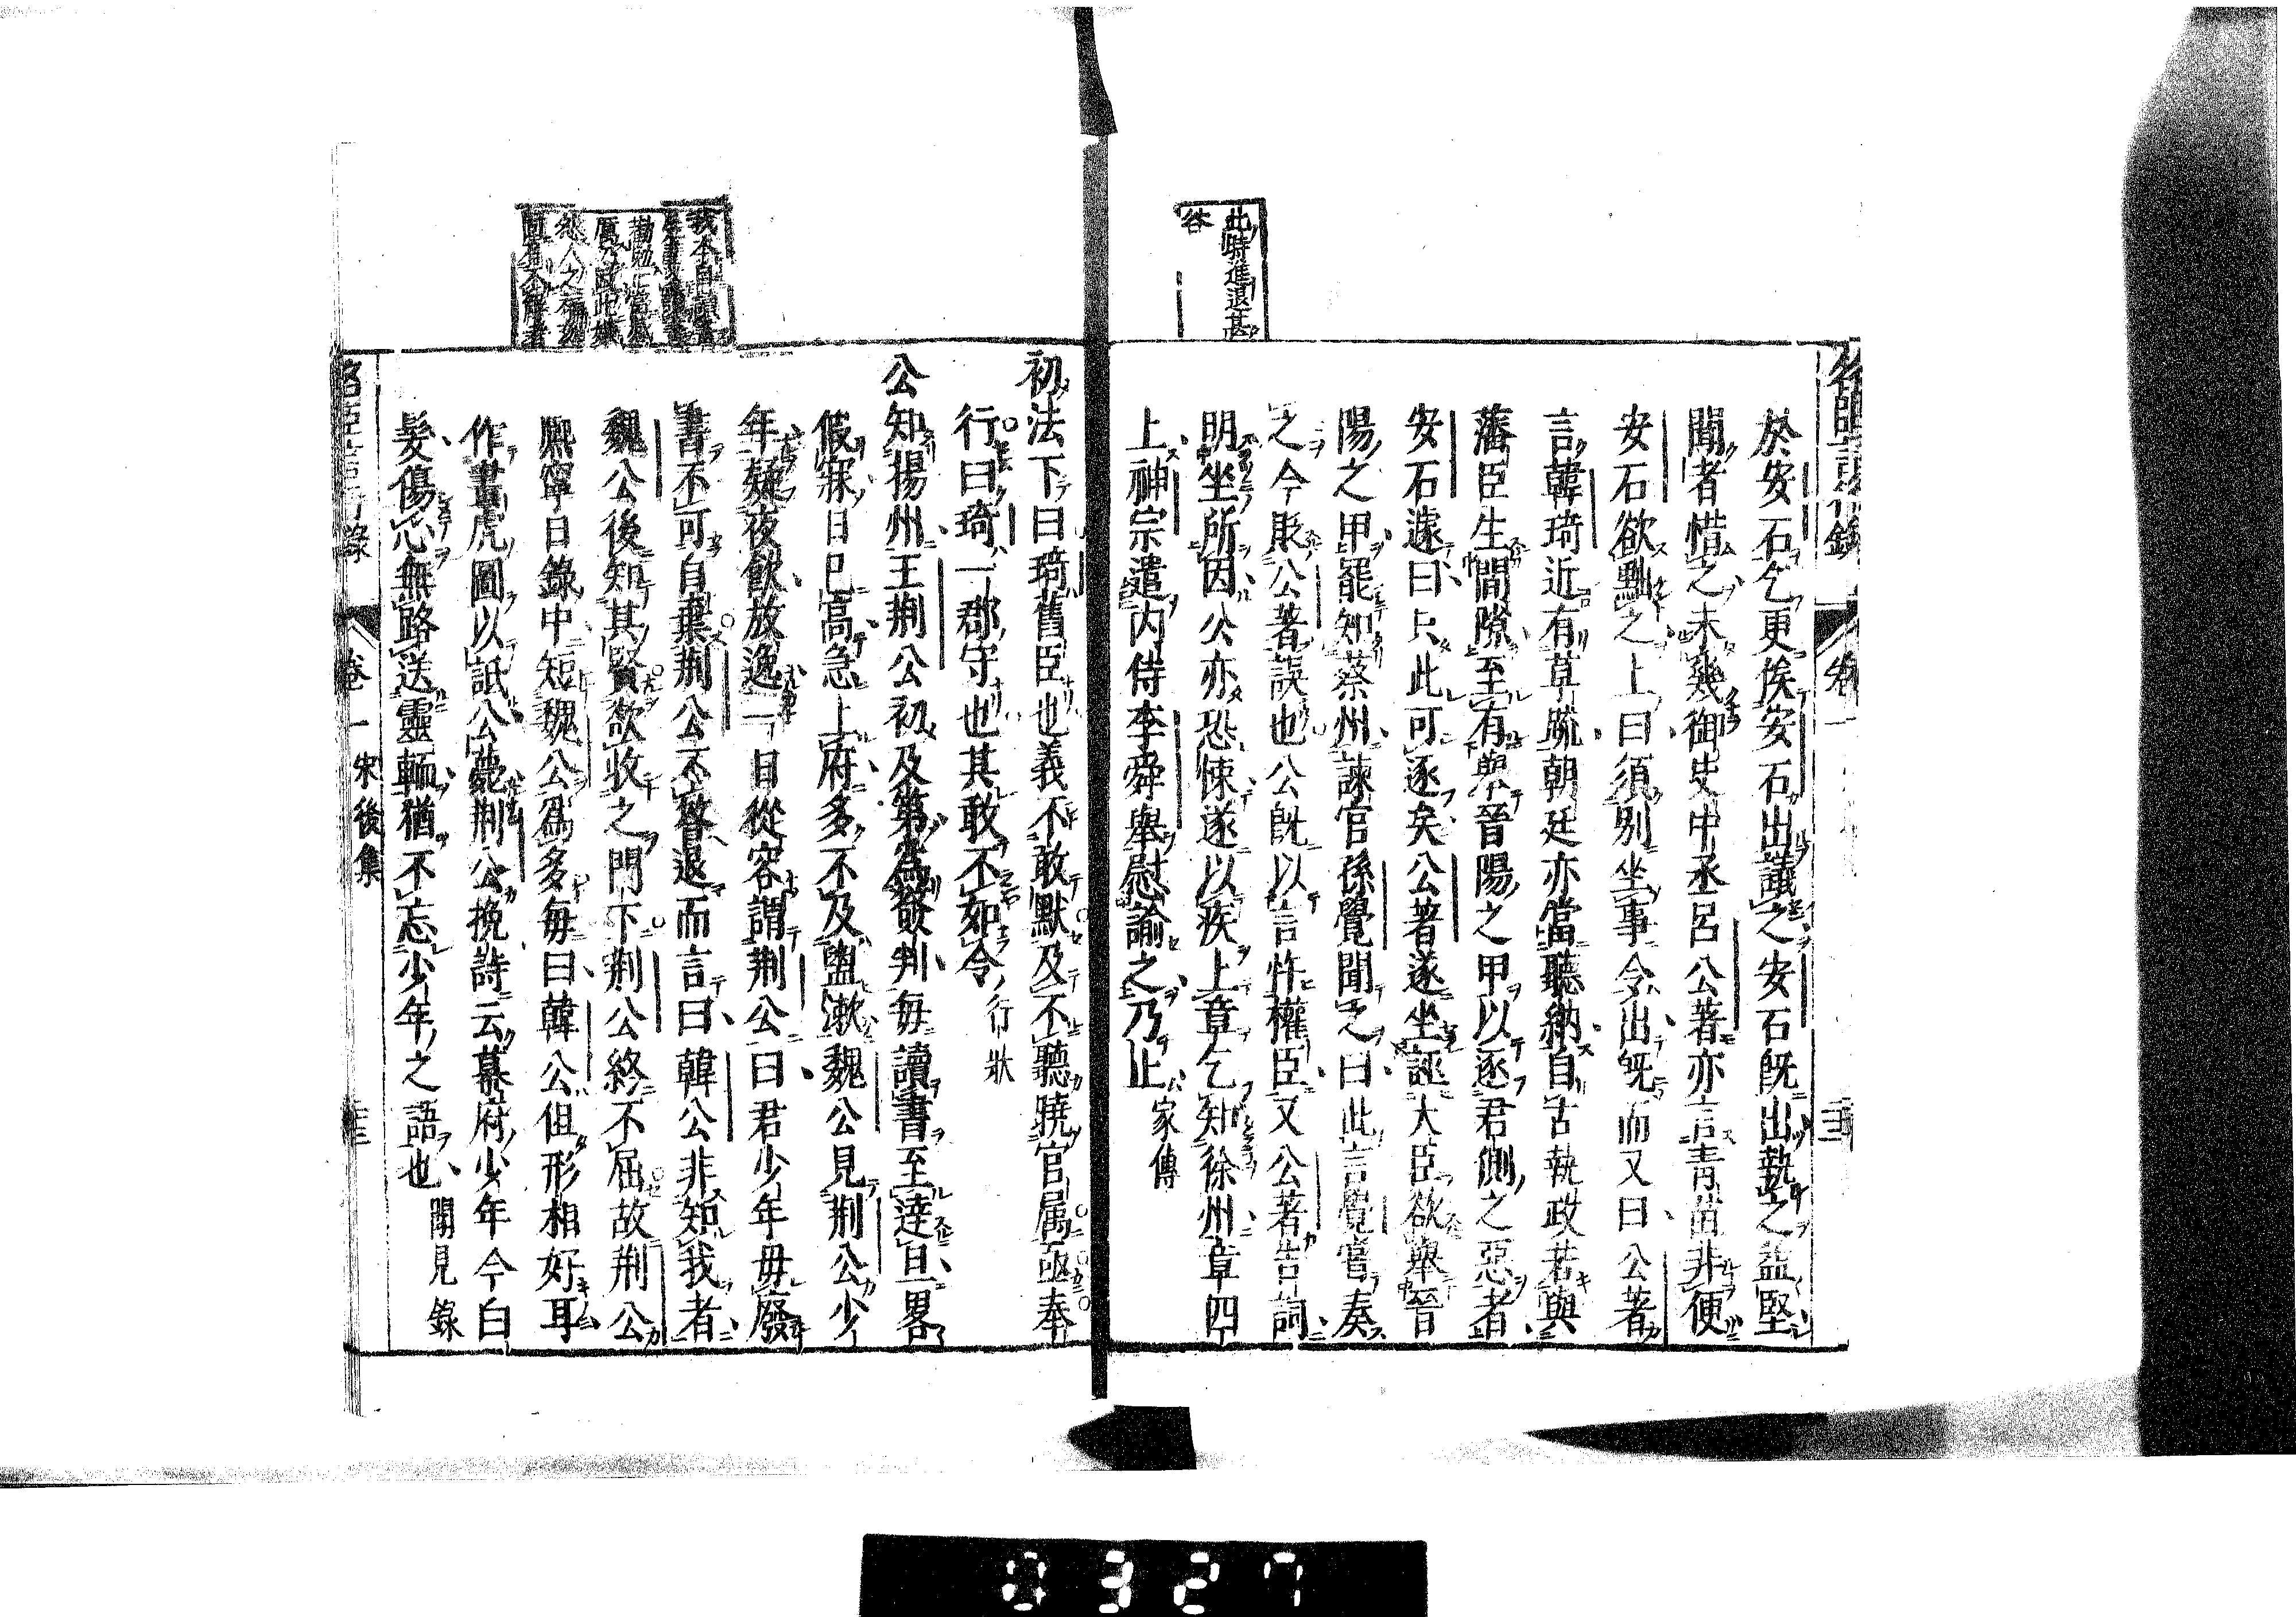 此時進退甚
咎
於安石乞更俟安石出議之安石既出執之益堅
聞者惜之未幾御史中丞呂公著亦言青苗非便
安石欲黜之上曰須別坐事令出既而又曰公著
言韓琦近有草疏朝廷亦當聽納自古執政若與
藩臣生間隙至有舉晉陽之甲以逐君側之惡者
安石遽曰只此可逐矣公著遂坐誣大臣欲舉晉
陽之甲罷知蔡州諫官孫覺聞之曰此言覺嘗奏
之今貶公著誤也公既以言忤權臣又公著告詞
明坐所因公亦恐悚遂以疾上章乞知徐州章四
上神宗遣内侍李舜舉慰諭之乃止家傳
初法下曰琦舊臣也義不敢默及不聽曉官属亟奉
行曰琦一郡守也其敢不如令行狀
公知揚州王荆公初及第為僉判每讀書至達旦畧
假寐日已高急上府多不及盥漱魏公見荆公少
年疑夜飲放逸一日從容謂荆公曰君少年毋廢
書不可自棄荆公不答退而言曰韓公非知我者
魏公後知其賢欲收之門下荆公終不屈故荆公
熈寧日錄中短魏公爲多每曰韓公但形相好耳
作畫虎圖以詆公薨荆公挽詩云幕府少年今白
髮傷心無路送靈輀猶不忘少年之語也聞見錄
卷一 宋後集
0327